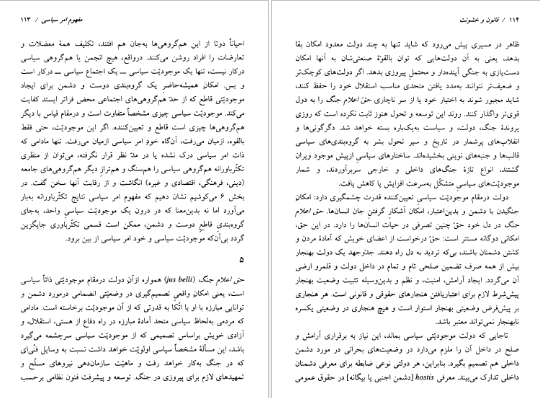 مفهوم امر سیاسی / ۱۱۳
احیاناً دوتا از این هم‌گروهی‌ها به‌جان هم افتند، تکلیف همهٔ معضلات و
تعارضات را افراد روشن می‌کنند. درواقع، هیچ انجمن یا هم‌گروهی سیاسی
درکار نیست، تنها یک موجودیّت سیاسی ــ یک اجتماع سیاسی ــ درکار است
و بس. امکان همیشه‌حاضر یک گروه‌بندی دوست و دشمن برای ایجاد
موجودیّتی قاطع که از حدّ هم‌گروهی‌های اجتماعی محض فراتر ایستد کفایت
می‌کند. موجودیّت سیاسی چیزی مشخصاً متفاوت است و درمقام قیاس با دیگر
هم‌گروهی‌ها چیزی است قاطع و تعیین‌کننده. اگر این موجودیّت، حتی فقط
بالقوه، ازمیان می‌رفت، آن‌گاه خود امر سیاسی ازمیان می‌رفت. تنها مادامی که
ذات امر سیاسی درک نشده یا در مدّ نظر قرار نگرفته، می‌توان از منظری
تکثّرباورانه هم‌گروهی سیاسی را هم‌سنگ و هم‌تراز دیگر هم‌گروهی‌های جامعه
(دینی، فرهنگی، اقتصادی و غیره) انگاشت و از رقابت آنها سخن گفت. در
بخش ۶ می‌کوشیم نشان دهیم که مفهوم امر سیاسی نتایج تکثّرباورانه به‌بار
می‌آورد اما نه بدین‌معنا که در درون یک موجودیّت سیاسی واحد، به‌جای
گروه‌بندی قاطع دوست و دشمن، ممکن است قسمی تکثّرباوری جایگزین
گردد بی‌آن‌که موجودیّت سیاسی و خود امر سیاسی از بین برود.
۵
حق اعلام جنگ (jus belli) همواره ازآن دولت درمقام موجودیّتی ذاتاً سیاسی
است، یعنی امکان واقعی تصمیم‌گیری در وضعیّتی انضمامی درمورد دشمن و
توانایی مبارزه با او با اتّکا به قدرتی که از آن موجودیّت برخاسته است. مادامی
که مردمی به‌لحاظ سیاسی متحد آمادهٔ مبارزه در راه دفاع از هستی، استقلال، و
آزادی خویش براساس تصمیمی که از موجودیّت سیاسی سرچشمه می‌گیرد
باشد، این مسألهٔ مشخصاً سیاسی اولویّت خواهد داشت نسبت به وسایل فنّی‌ای
که در جنگ به‌کار خواهد رفت و ماهیّت سازمان‌دهی نیروهای مسلّح و
تمهیدهای لازم برای پیروزی در جنگ. توسعه و پیشرفت فنون نظامی برحسب
۱۱۴ / قانون و خشونت
ظاهر در مسیری پیش می‌رود که شاید تنها به چند دولت معدود امکان بقا
بدهد، یعنی به آن دولت‌هایی که توان بالقوّهٔ صنعتی‌شان به آنها امکان
دست‌یازی به جنگی آینده‌دار و محتمل پیروزی بدهد. اگر دولت‌های کوچک‌تر
و ضعیف‌تر نتوانند به‌مدد یافتن متحدی مناسب استقلال خود را حفظ کنند،
شاید مجبور شوند به اختیار خود یا از سر ناچاری حق اعلام جنگ را به دول
قوی‌تر واگذار کنند. روند این توسعه و تحول هنوز ثابت نکرده است که روزی
پروندهٔ جنگ، دولت، و سیاست به‌یک‌باره بسته خواهد شد. دگرگونی‌ها و
انقلاب‌های پرشمار در تاریخ و سیر تحول بشر به گروه‌بندی‌های سیاسی
قالب‌ها و جنبه‌های نوینی بخشیده‌اند. ساختارهای سیاسی ازپیش موجود ویران
گشتند، انواع تازهٔ جنگ‌های داخلی و خارجی سربرآوردند، و شمار
موجودیّت‌های سیاسی متشکّل به‌سرعت افزایش یا کاهش یافت.
دولت درمقام موجودیّت سیاسی تعیین‌کننده قدرت چشمگیری دارد: امکان
جنگیدن با دشمن و بدین‌اعتبار، امکان آشکار گرفتن جان انسان‌ها. حق اعلام
جنگ در دل خود حقّ چنین تصرفی در حیات انسان‌ها را دارد. در این حق،
امکانی دوگانه مستتر است: حقّ درخواست از اعضای خویش که آمادهٔ مردن و
کشتن دشمنان باشند، بی‌که تردید به دل راه دهند. جدّوجهد یک دولت بهنجار
بیش از همه صرف تضمین صلحی تام و تمام در داخل دولت و قلمرو ارضی
آن می‌گردد. ایجاد آرامش، امنیت، و نظم و بدین‌وسیله تثبیت وضعیت بهنجار
پیش‌شرط لازم برای اعتباریافتن هنجارهای حقوقی و قانونی است. هر هنجاری
بر پیش‌فرض وضعیتی بهنجار استوار است و هیچ هنجاری در وضعیتی یکسره
نابهنجار نمی‌تواند معتبر باشد.
تاجایی که دولت موجودیّتی سیاسی بماند، این نیاز به برقراری آرامش و
صلح در داخل آن را ملزم می‌دارد در وضعیت‌های بحرانی در مورد دشمن
داخلی هم تصمیم بگیرد. بنابراین، هر دولتی نوعی ضابطه برای معرفی دشمنان
داخلی تدارک می‌بیند. معرفی hostis [دشمن اجنبی یا بیگانه] در حقوق عمومی